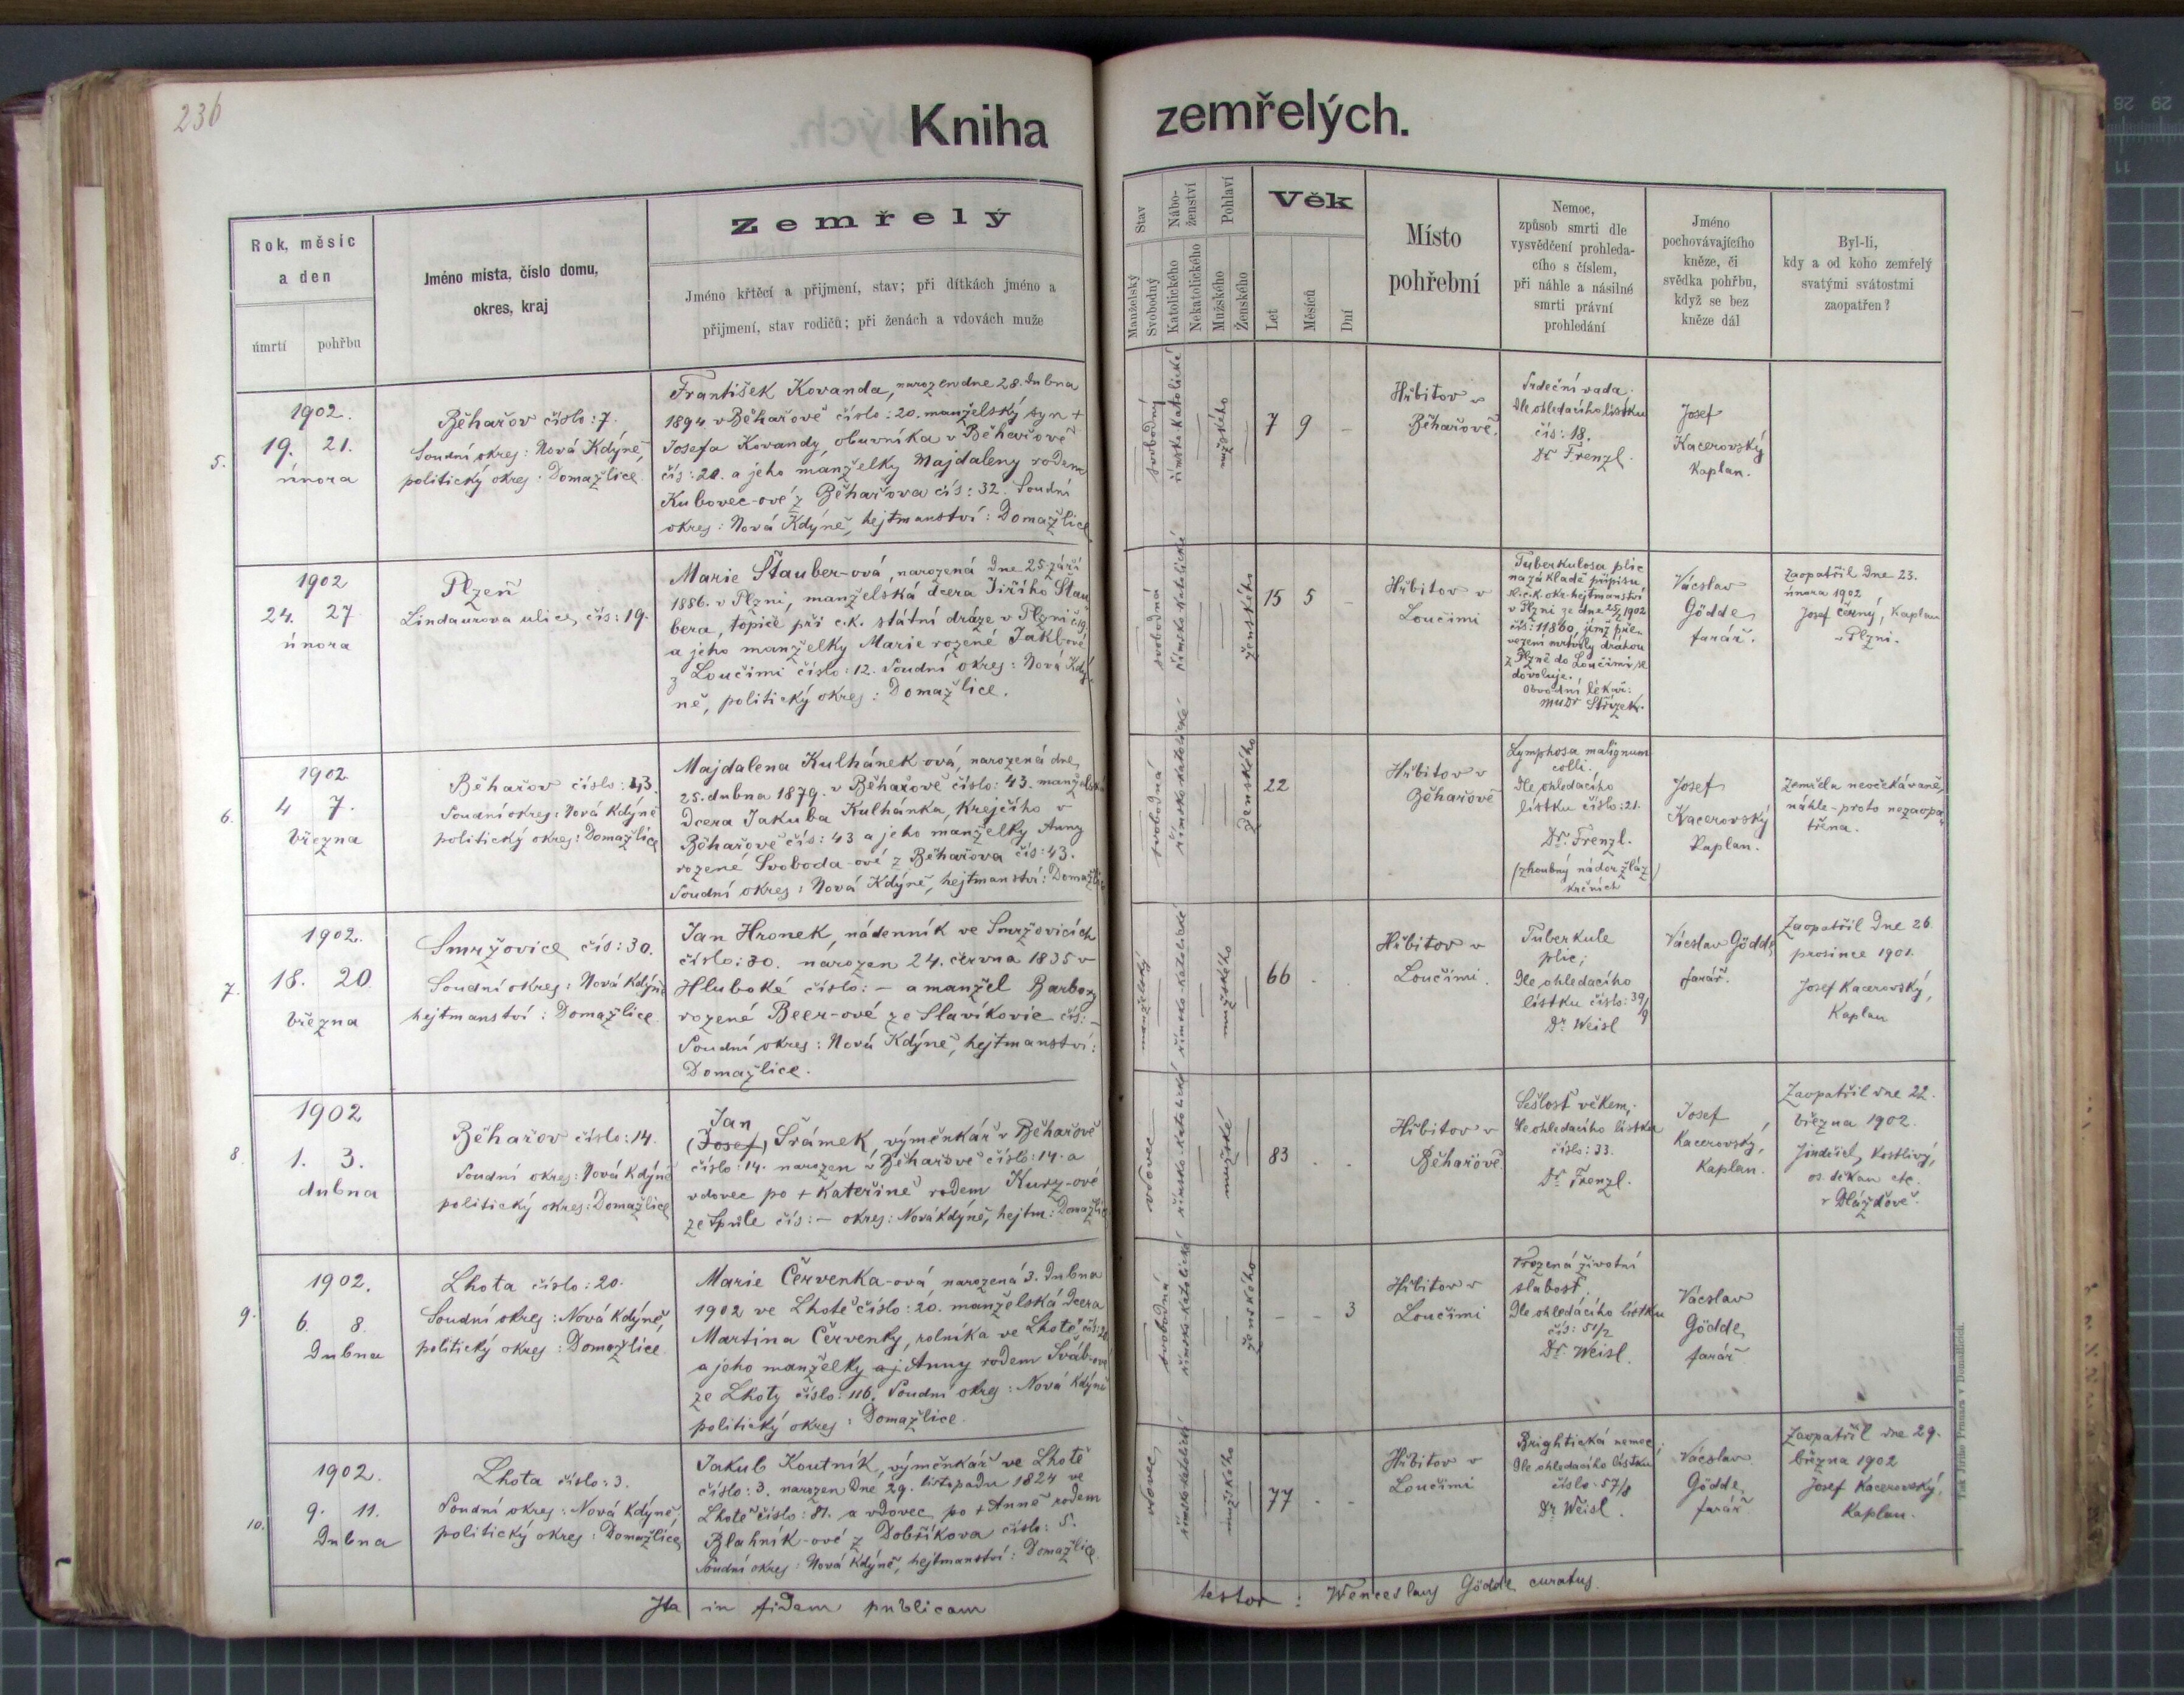 236
Kniha zemřelých.
Rok, měsíc
a den
úmrtí pohřbu
Jméno místa, číslo domu,
okres, kraj
Zemřelý
Jméno křtěcí a příjmení, stav; při dítkách jméno a
příjmení, stav rodičů; při ženách a vdovách muže
Stav
Manželský
Svobodný
Nábo-
ženství
Katolického
Nekatolického
Pohlaví
Mužského
Ženského
Věk
Let
Měsíců
Dní
Místo
pohřební
Nemoc,
způsob smrti dle
vysvědčení prohleda-
cího s číslem,
při náhle a násilné
smrti právní
prohledání
Jméno
pochovávajícího
kněze, či
svědka pohřbu,
když se bez
kněze dál
Byl-li,
kdy a od koho zemřelý
svatými svátostmi
zaopatřen?
5.
1902.
19. 21.
února
Běhařov číslo: 7.
Soudní okres: Nová Kdýně,
politický okres: Domažlice.
František Kovanda, narozen dne 28. dubna
1894 v Běhařově číslo: 20. manželský syn +
Josefa Kovandy, obuvníka v Běhařově
čís: 20. a jeho manželky Majdaleny rodem
Kubovec-ové z Běhařova čís: 32. Soudní
okres: Nová Kdýně, hejtmanství: Domažlice
svobodný
římsko-katolické
mužského
7 9 -
Hřbitov v
Běhařově.
Srdeční vada;
Dle ohledacího lístku
čís: 18.
Dr Frenzl.
Josef
Kacerovský
Kaplan.
1902
24. 27
února
Plzeň
Lindaurova ulice, čís: 19.
Marie Štauber-ová, narozená dne 25. září
1886. v Plzni, manželská dcera Jiřího Štau
bera, topiče při c.k. státní dráze v Plzni č. 19
a jeho manželky Marie rozené Jaklové
z Loučimi číslo: 12. Soudní okres: Nová Kdý
ně, politický okres: Domažlice.
svobodná
římsko-katolické
ženského
15 5 -
Hřbitov v
Loučimi
Tuberkulosa plic
na základě přípisu
sl. c.k. okr. hejtmanství
v Plzni ze dne 25/2 1902
čís: 11860, jímž pře-
vezení mrtvoly drahou
z Plzně do Loučimi se
dovoluje.
Obvodní lékař:
MUDr Střízek.
Václav
Gödde,
farář.
Zaopatřil dne 23.
února 1902
Josef Černý, Kaplan
v Plzni.
6.
1902
4 7.
března
Běhařov číslo: 43.
Soudní okres: Nová Kdýně
politický okres: Domažlice
Majdalena Kulhánek ová, narozená dne
25. dubna 1879. v Běhařově číslo: 43. manželská
dcera Jakuba Kulhánka, Krejčího v
Běhařově čís: 43 a jeho manželky Anny
rozené Svoboda-ové z Běhařova čís: 43.
Soudní okres: Nová Kdýně, hejtmanství: Domažlice
svobodná
římsko katolické
ženského
22
Hřbitov v
Běhařově
Lymphosa malignum
colli.
Dle ohledacího
lístku číslo: 21.
Dr. Frenzl.
(zhoubný nádor žláz
krčních
Josef
Kacerovský
Kaplan.
Zemřela neočekávaně,
náhle - proto nezaopa
třena.
7.
1902.
18. 20
března
Smržovice čís: 30.
Soudní okres: Nová Kdýně
hejtmanství: Domažlice.
Jan Hronek, nádenník ve Smržovicích
číslo: 30. narozen 24. června 1835 v
Hluboké číslo: - a manžel Barbory
rozené Beer-ové ze Slavíkovic čís: -
Soudní okres: Nová Kdýně, hejtmanství:
Domažlice.
manželský
římsko-katolické
mužského
66 . .
Hřbitov v
Loučimi.
Tuberkule
plic;
Dle ohledacího
lístku číslo: 39/9
Dr Weisl
Václav Gödde,
farář.
Zaopatřil dne 26.
prosince 1901.
Josef Kacerovský,
Kaplan
8.
1902
1. 3.
dubna
Běhařov číslo: 14.
Soudní okres: Nová Kdýně
politický okres: Domažlice
Jan
(Josef) Šrámek, výměnkář v Běhařově
číslo: 14. narozen v Běhařově číslo: 14. a
vdovec po + Kateřině rodem Kurz-ové
ze Spůle čís: - okres: Nová Kdýně, hejtm: Domažlice
vdovec
římsko-katolické
mužské
83 . .
Hřbitov v
Běhařově
Sešlost věkem;
Dle ohledacího lístku
číslo: 33.
Dr Frenzl.
Josef
Kacerovský,
Kaplan.
Zaopatřil dne 22.
března 1902.
Jindřich Kostlivý,
os. děkan etc.
v Dlažďově.
9.
1902.
6. 8.
Dubna
Lhota číslo: 20.
Soudní okres: Nová Kdýně,
politický okres: Domažlice
Marie Červenka-ová narozená 3. Dubna
1902 ve Lhotě číslo: 20. manželská dcera
Martina Červenky, rolníka ve Lhotě, čís: 20
a jeho manželky aj Anny rodem Šváb-ové
ze Lhoty číslo: 116, Soudní okres: Nová Kdýně
politický okres: Domažlice.
svobodná
římsko-katolické
ženského
- - 3
Hřbitov v
Loučimi
Vrozená životní
slabost,
Dle ohledácího lístku
čís: 51/2
Dr. Weisl.
Václav
Gödde,
farář
10.
1902.
9. 11.
Dubna
Lhota číslo: 3.
Soudní okres: Nová Kdýně,
politický okres: Domažlice,
Jakub Koutník, výměnkář ve Lhotě
číslo: 3. narozen dne 29. listopadu 1824 ve
Lhotě číslo: 81. a vdovec po + Anně rodem
Blahník-ové z Dobříkova číslo: 5.
Soudní okres: Nová Kdýně, hejtmanství: Domažlice.
vdovec
římsko katolické
mužského
77 . -
Hřbitov v
Loučimi
Brightická nemoc;
Dle ohledacího lístku
číslo: 57/8
Dr Weisl.
Václav
Gödde,
farář
Zaopatřil dne 29.
března 1902
Josef Kacerovský,
Kaplan.
Ita in fidem publicam testor: Wenceslaus Gödde curatus.
Tisk Jiřího Prunara v Domažlicích.